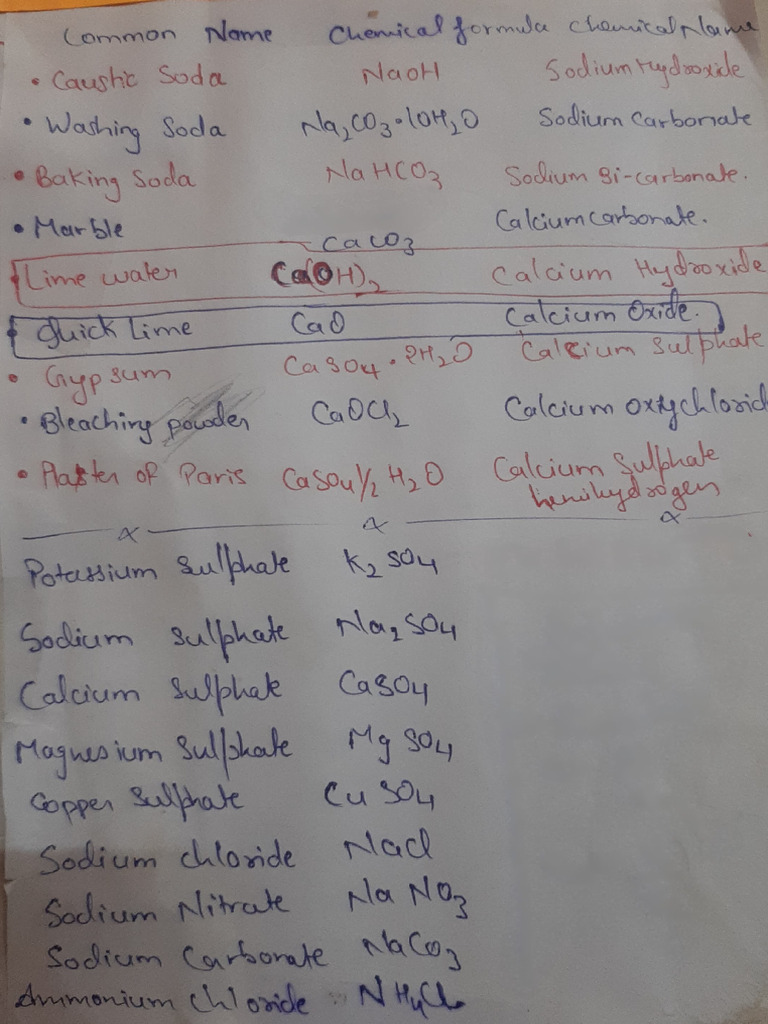 Common Name Chemical formula Chemical Name
• Caustic Soda NaOH Sodium Hydroxide
• Washing Soda Na2CO3·10H2O Sodium Carbonate
• Baking Soda NaHCO3 Sodium Bi-carbonate.
• Marble CaCO3 Calcium carbonate.
• Lime water Ca(OH)2 Calcium Hydroxide
• Quick Lime CaO Calcium Oxide.
• Gypsum CaSO4·2H2O Calcium Sulphate
• Bleaching powder CaOCl2 Calcium oxtychlorid
• Plaster of Paris CaSO41/2 H2O Calcium Sulphate
hemihydrogen
x x x
Potassium Sulphate K2SO4
Sodium Sulphate Na2SO4
Calcium Sulphate CaSO4
Magnesium Sulphate MgSO4
Copper Sulphate CuSO4
Sodium chloride NaCl
Sodium Nitrate NaNO3
Sodium Carbonate NaCO3
Ammonium chloride NH4Cl